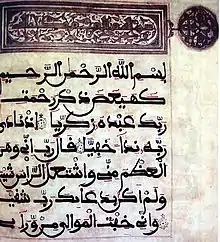 بسم الله الرحمن الرحيم
كهيعص ذكر رحمت
ربك عبده زكريا إذ نادى
ربه نداء خفيا قال رب إني وهن
العظم مني واشتعل الرأس شيبا
ولم أكن بدعائك رب شقيا
وإني خفت الموالي من ورا